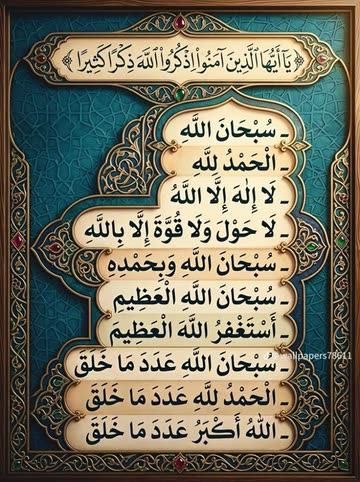 يَا أَيُّهَا الَّذِينَ آمَنُوا اذْكُرُوا اللَّهَ ذِكْرًا كَثِيرًا
- سُبْحَانَ اللَّهِ
- الْحَمْدُ لِلَّهِ
- لَا إِلٰهَ إِلَّا اللَّهُ
- لَا حَوْلَ وَلَا قُوَّةَ إِلَّا بِاللَّهِ
- سُبْحَانَ اللَّهِ وَبِحَمْدِهِ
- سُبْحَانَ اللَّهِ الْعَظِيمِ
- أَسْتَغْفِرُ اللَّهَ الْعَظِيمَ
- سُبْحَانَ اللَّهِ عَدَدَ مَا خَلَقَ
wallpapers78611
- الْحَمْدُ لِلَّهِ عَدَدَ مَا خَلَقَ
- اللَّهُ أَكْبَرُ عَدَدَ مَا خَلَقَ